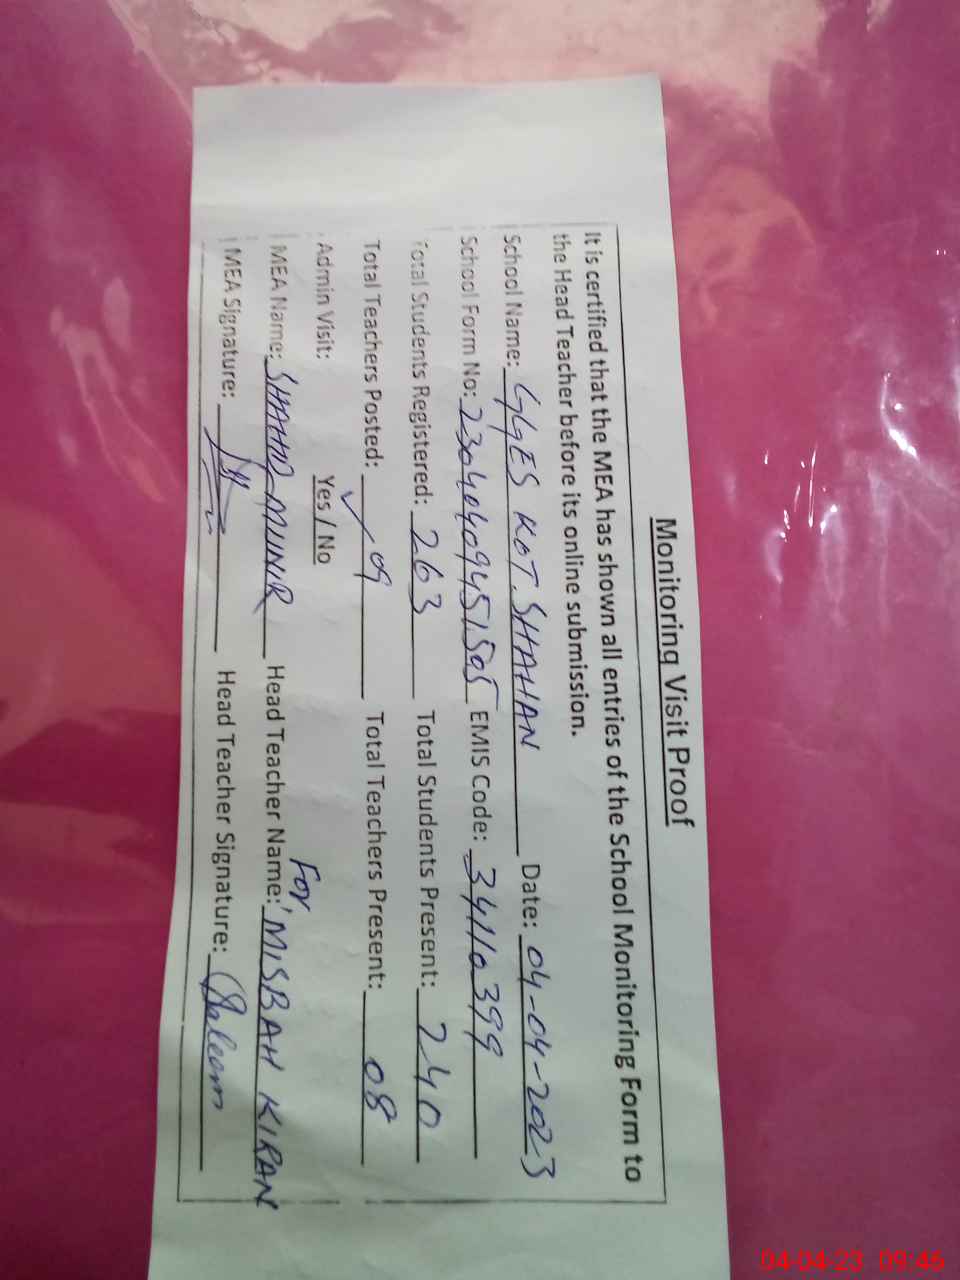 Monitoring Visit Proof
It is certified that the MEA has shown all entries of the School Monitoring Form to
the Head Teacher before its online submission.
School Name: GGES KOT. SHAHAN Date: 04-04-2023
School Form No: 23040409451505 EMIS Code: 34110399
Total Students Registered: 263 Total Students Present: 240
Total Teachers Posted: 09 Total Teachers Present: 08
Admin Visit: Yes / No
For
MEA Name: SHAHID MUNIR Head Teacher Name: MISBAH KIRAN
MEA Signature: Head Teacher Signature: Saleem
04-04-23 09:46